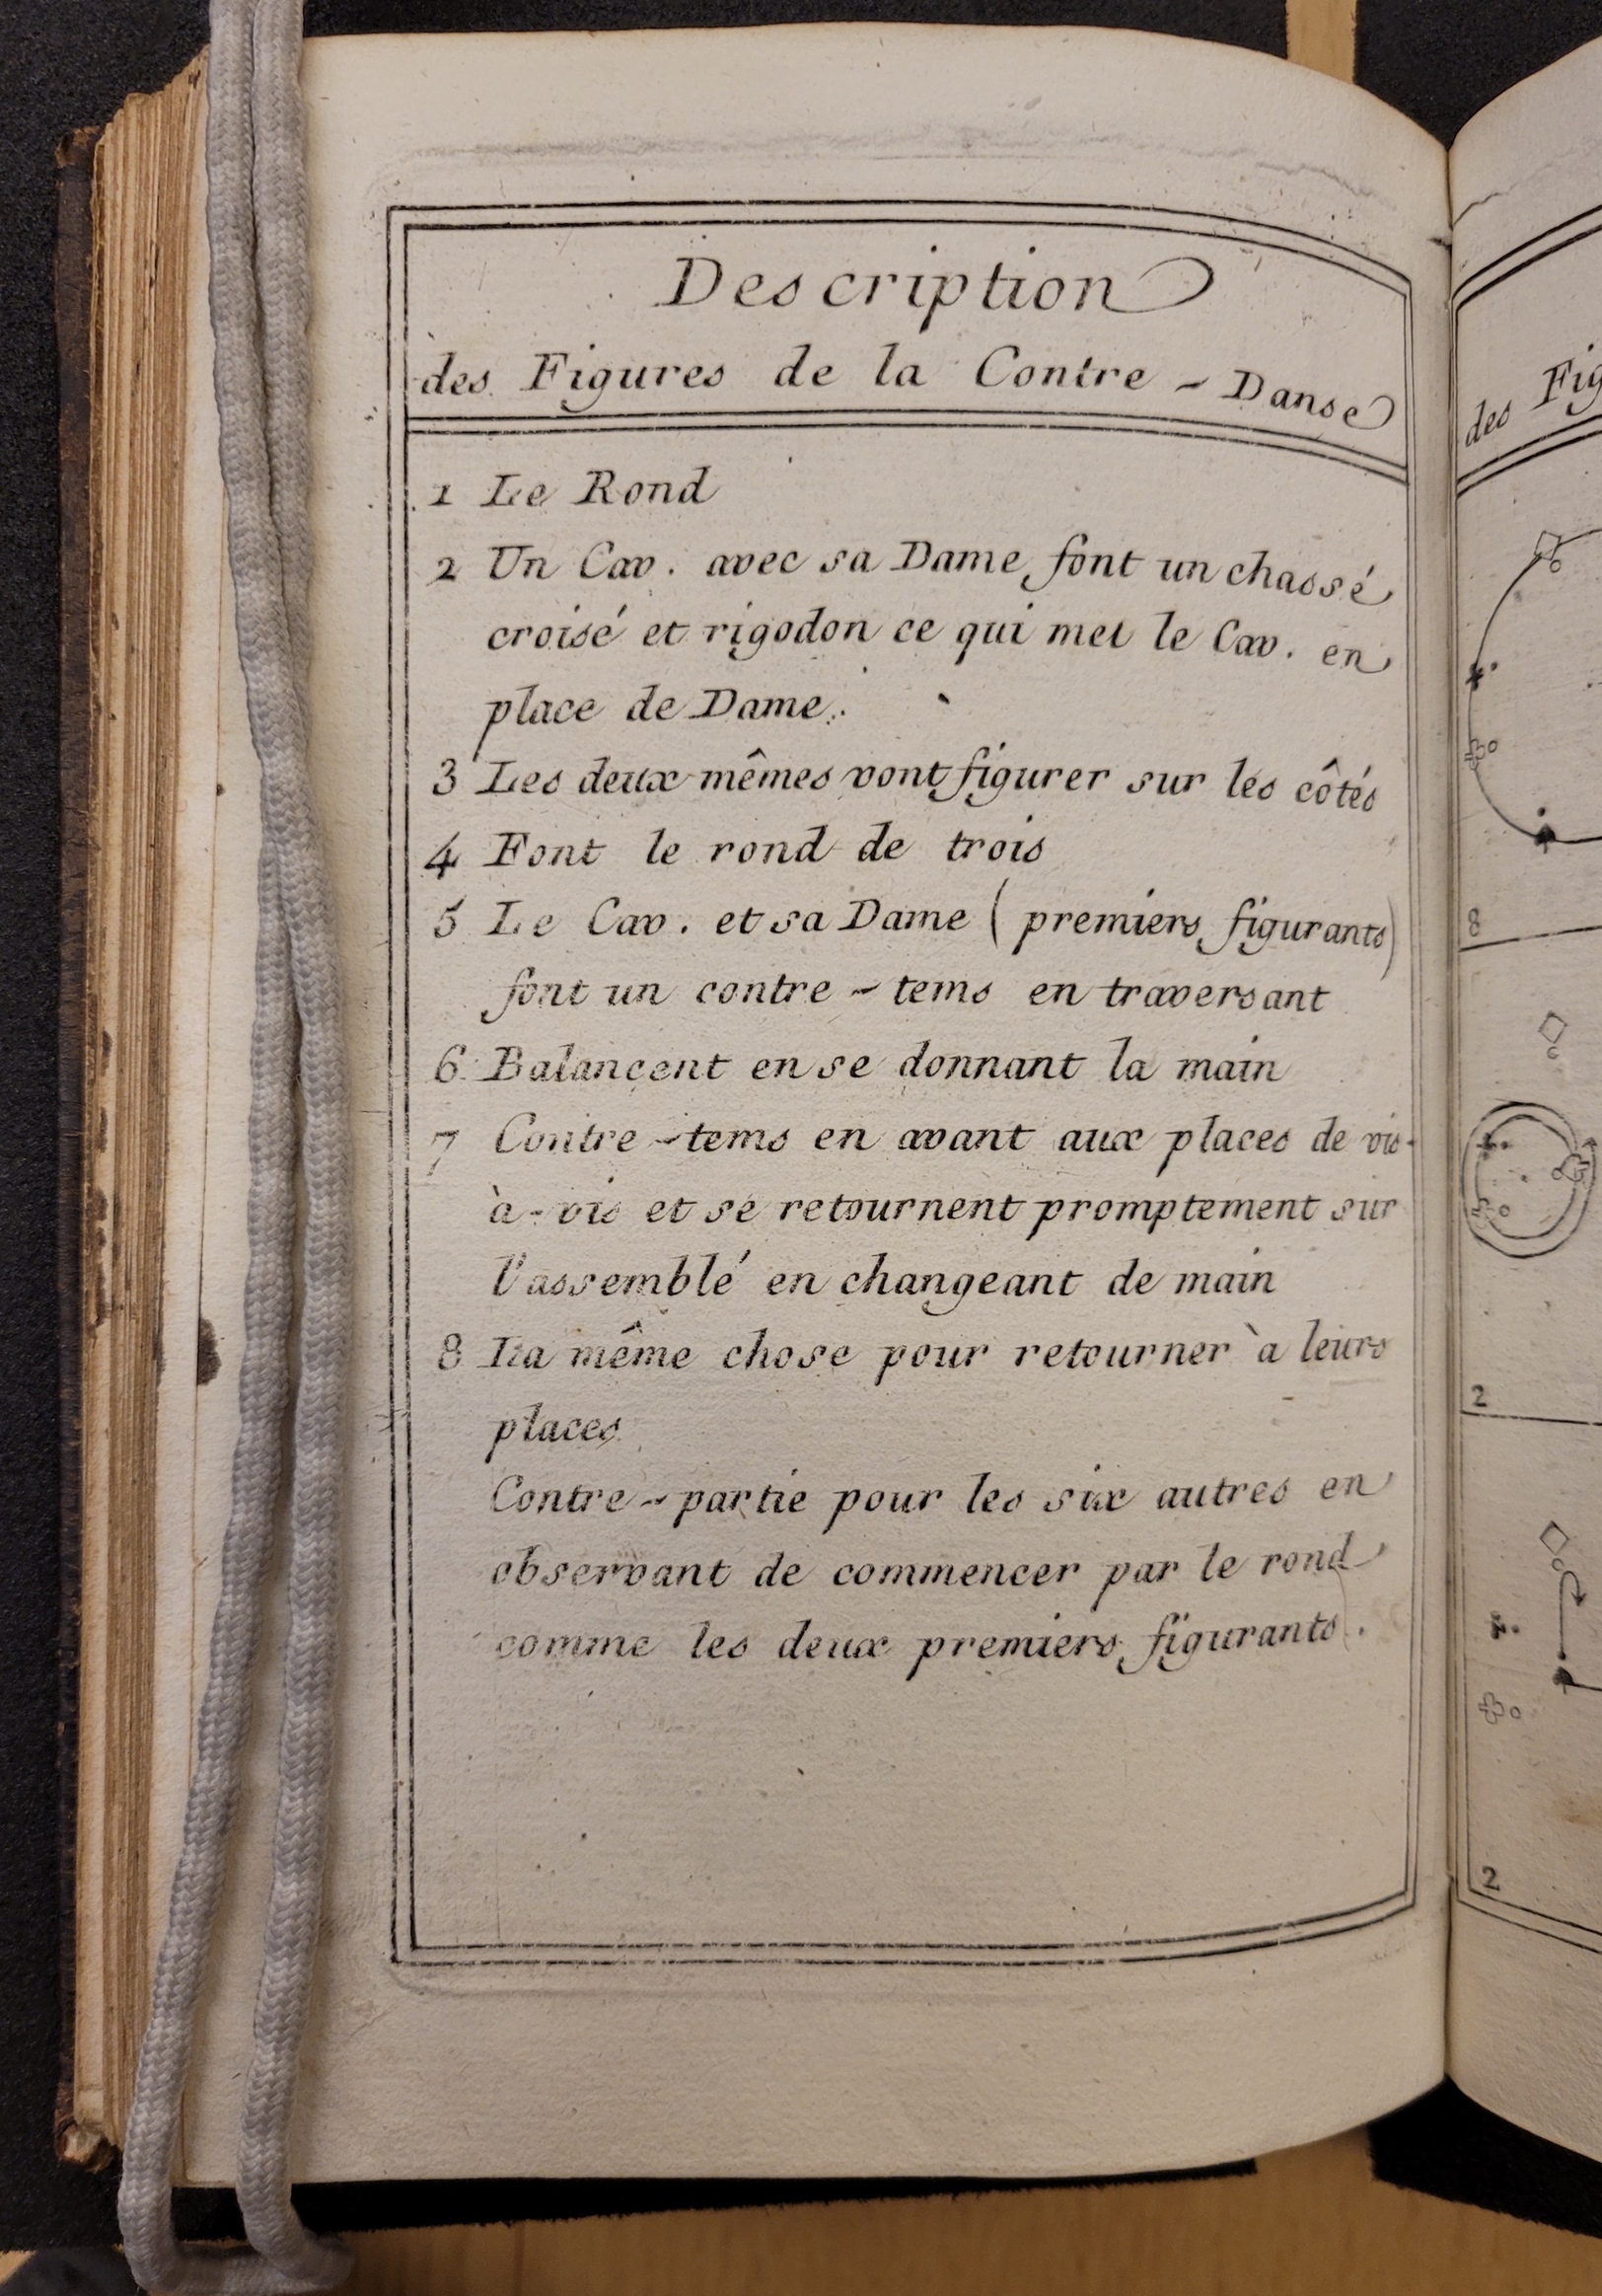 Description
des Figures de la Contre - Danse
1 Le Rond
2 Un Cav. avec sa Dame font un chassé
croisé et rigodon ce qui met le Cav. en
place de Dame.
3 Les deux mêmes vont figurer sur les côtés
4 Font le rond de trois
5 Le Cav. et sa Dame (premiers figurants)
font un contre-tems en traversant
6 Balancent en se donnant la main
7 Contre-tems en avant aux places de vis-
à-vis et se retournent promptement sur
l'assemblé en changeant de main
8 La même chose pour retourner à leurs
places
Contre-partie pour les six autres en
observant de commencer par le rond
comme les deux premiers figurants.
des Fig
8
2
2